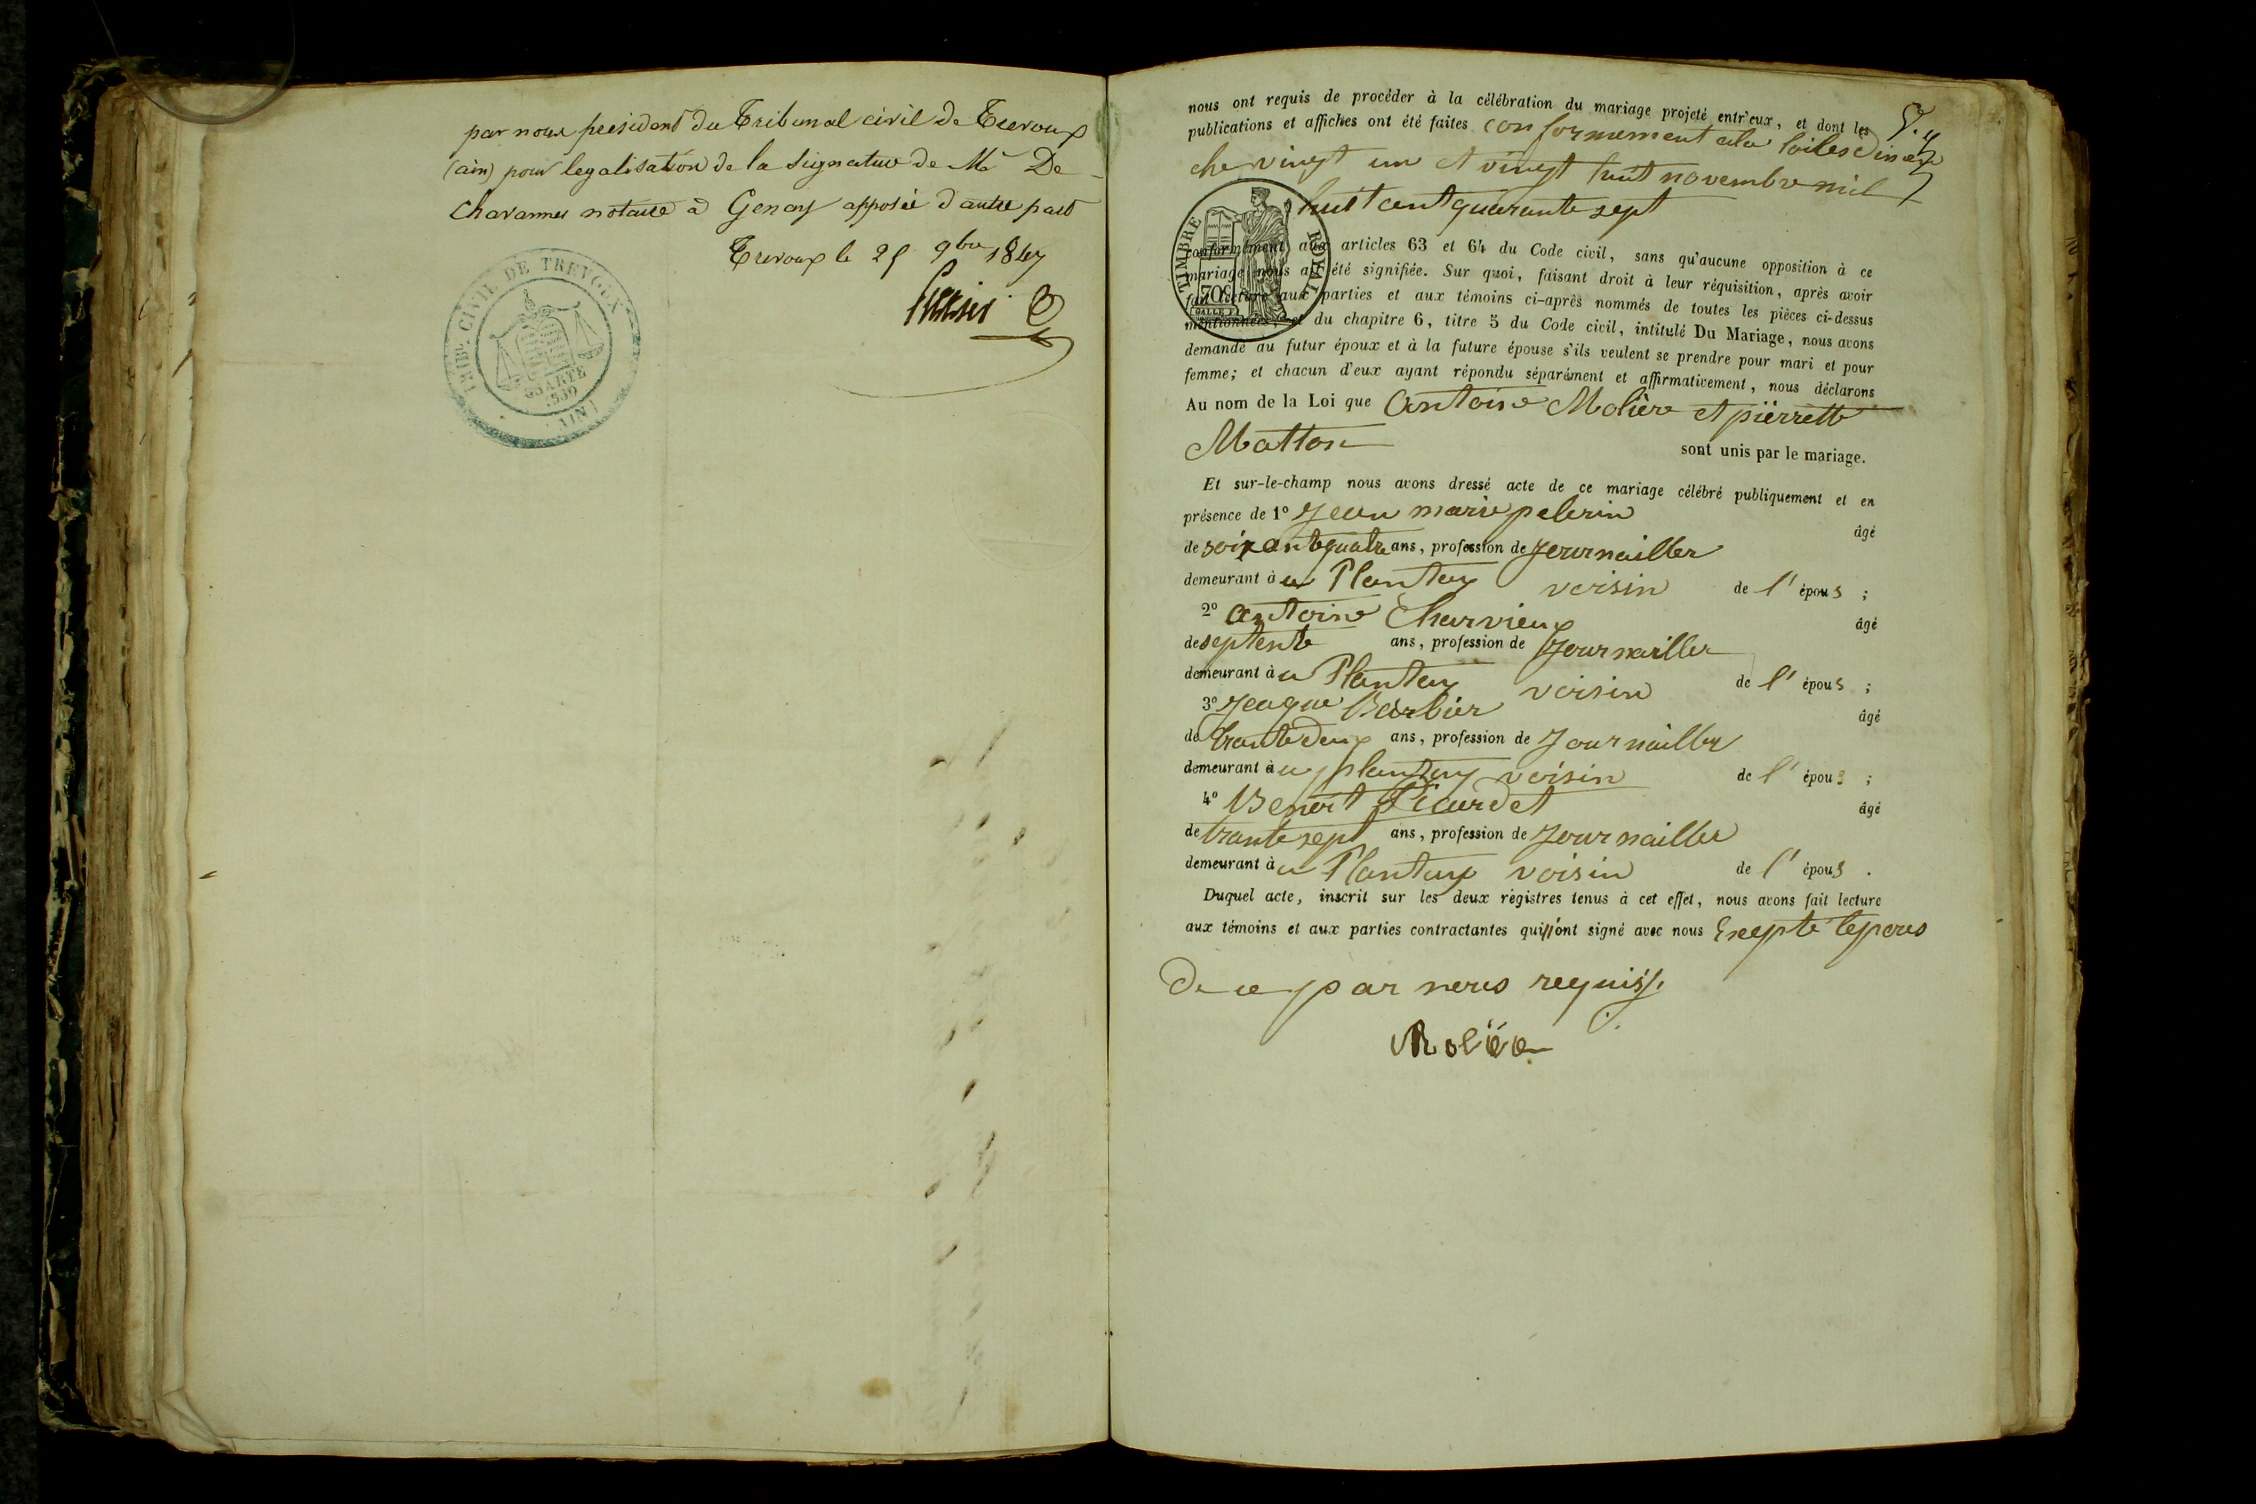 par nous president du Tribunal civil de Trevoux
(ain) pour legalisation de la Signature de Me De
Chavannes notaire à Genay apposée d'autre part
Trevoux le 25 9bre 1847
TRIBAL CIVIL DE TREVOUX
CHARTE
1830
(AIN)
nous ont requis de procéder à la célébration du mariage projeté entr'eux, et dont les
publications et affiches ont été faites conformement ala loi les diman
che vingt un et vingt huit novembre mil
huit cent quarante sept
TIMBRE ROYAL
70c
conformément aux articles 63 et 64 du Code civil, sans qu'aucune opposition à ce
mariage nous ait été signifiée. Sur quoi, faisant droit à leur réquisition, après avoir
fait lecture aux parties et aux témoins ci-après nommés de toutes les pièces ci-dessus
mentionnées, et du chapitre 6, titre 5 du Code civil, intitulé Du Mariage, nous avons
demandé au futur époux et à la future épouse s'ils veulent se prendre pour mari et pour
femme; et chacun d'eux ayant répondu séparément et affirmativement, nous déclarons
Au nom de la Loi que Antoine Molière et pierrette
Matton sont unis par le mariage.
Et sur-le-champ nous avons dressé acte de ce mariage célébré publiquement et en
présence de 1° Jean marie pelerin âgé
de soixante quatre ans, profession de Journallier
demeurant à u Plantay voisin de l' épous ;
2° Antoine Charvieux âgé
de septente ans, profession de Journallier
demeurant à u Plantay voisin de l' épous ;
3° Jaque Barbier âgé
de trante deux ans, profession de Journallier
demeurant à u plantay voisin de l' épous ;
4° Benoit Picardet âgé
de trante sept ans, profession de Journallier
demeurant à u Plantay voisin de l' épous .
Duquel acte, inscrit sur les deux registres tenus à cet effet, nous avons fait lecture
aux témoins et aux parties contractantes qui n'ont signé avec nous Exepté lepous
De ce par nous requis.